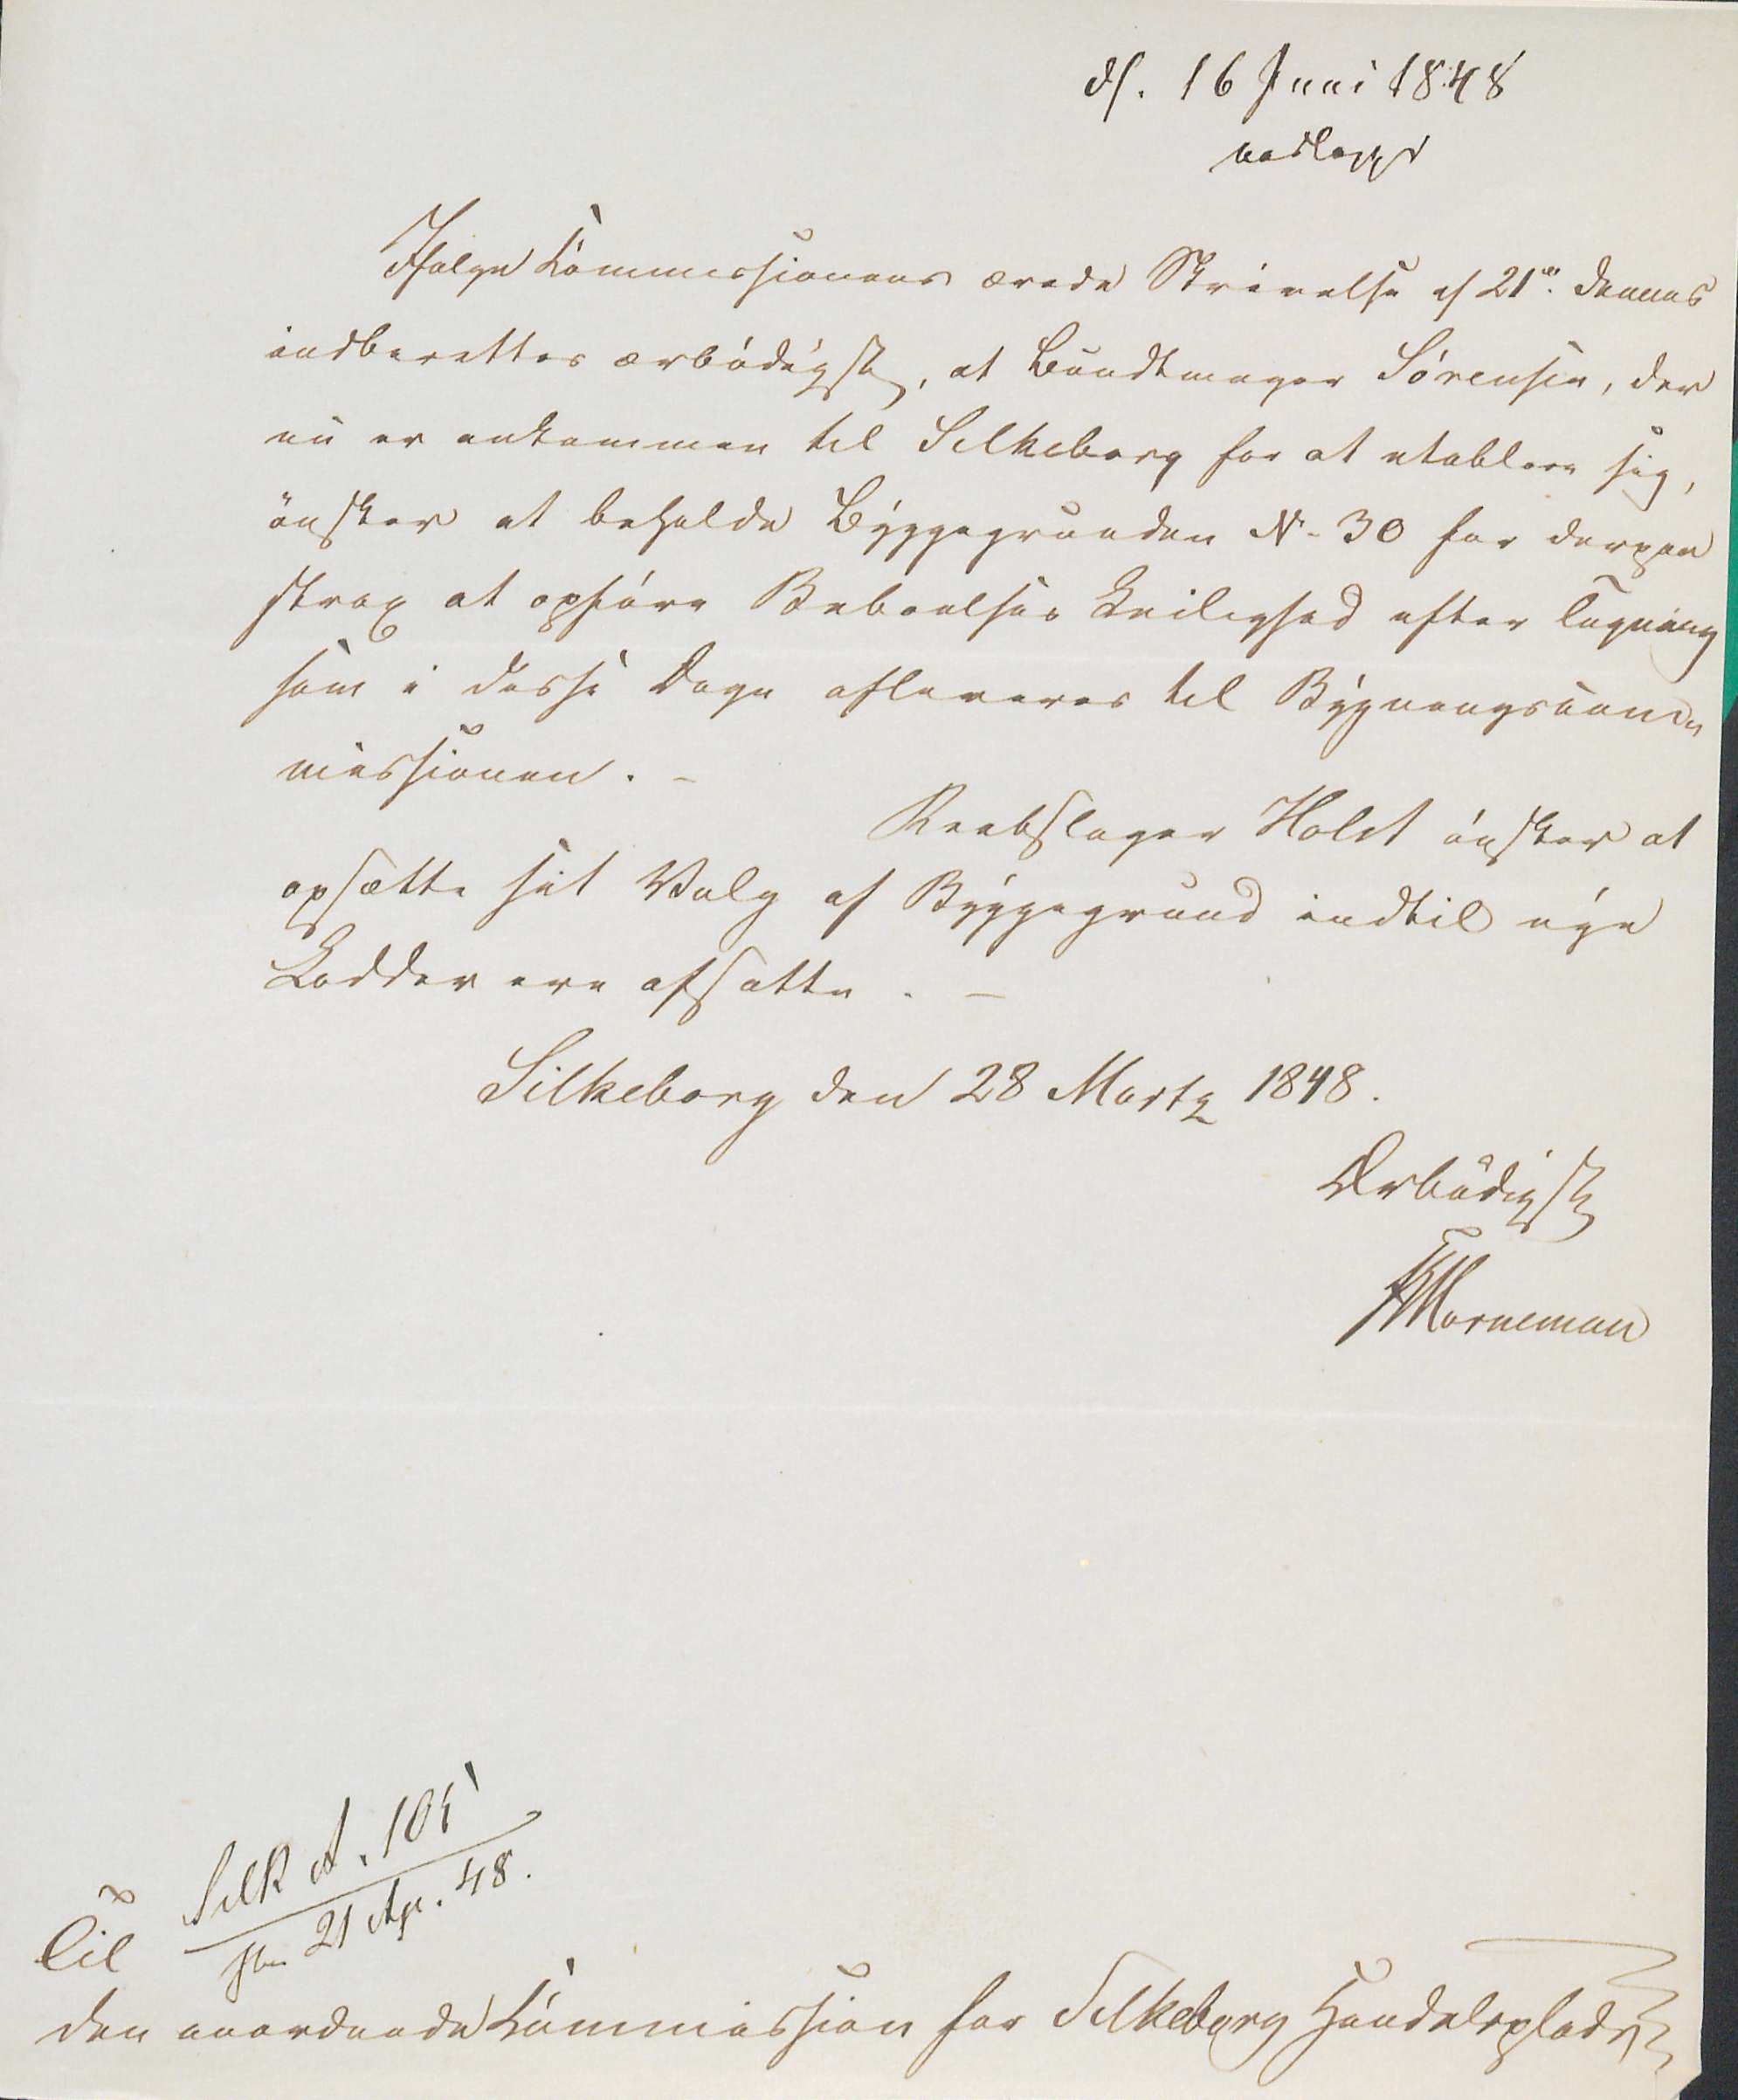 d. 16 Juni 1848
nedlagt
Ifølge Kommissionens ærede Skrivelse af 21de dennes
indberettes ærbødigst, at Bundtmager Sörensen, der
nu er ankommen til Silkeborg for at etablere sig,
önsker at beholde Byggegrunden No 30 for derpaa
strax at opföre Beboelses Leilighed efter Tegning
som i disse Dage afleveres til Bygningscom-
missionen. -
Reebslager Holst önsker at
opsætte sit Valg af Byggegrund indtil nye
Lodder ere afsatte. -
Silkeborg den 28 Martz 1848.
Ærbödigst
Horneman
Silk A. 105
21 Ap. 48.
Til
den anordnede Kommission for Silkeborg Handelsplads